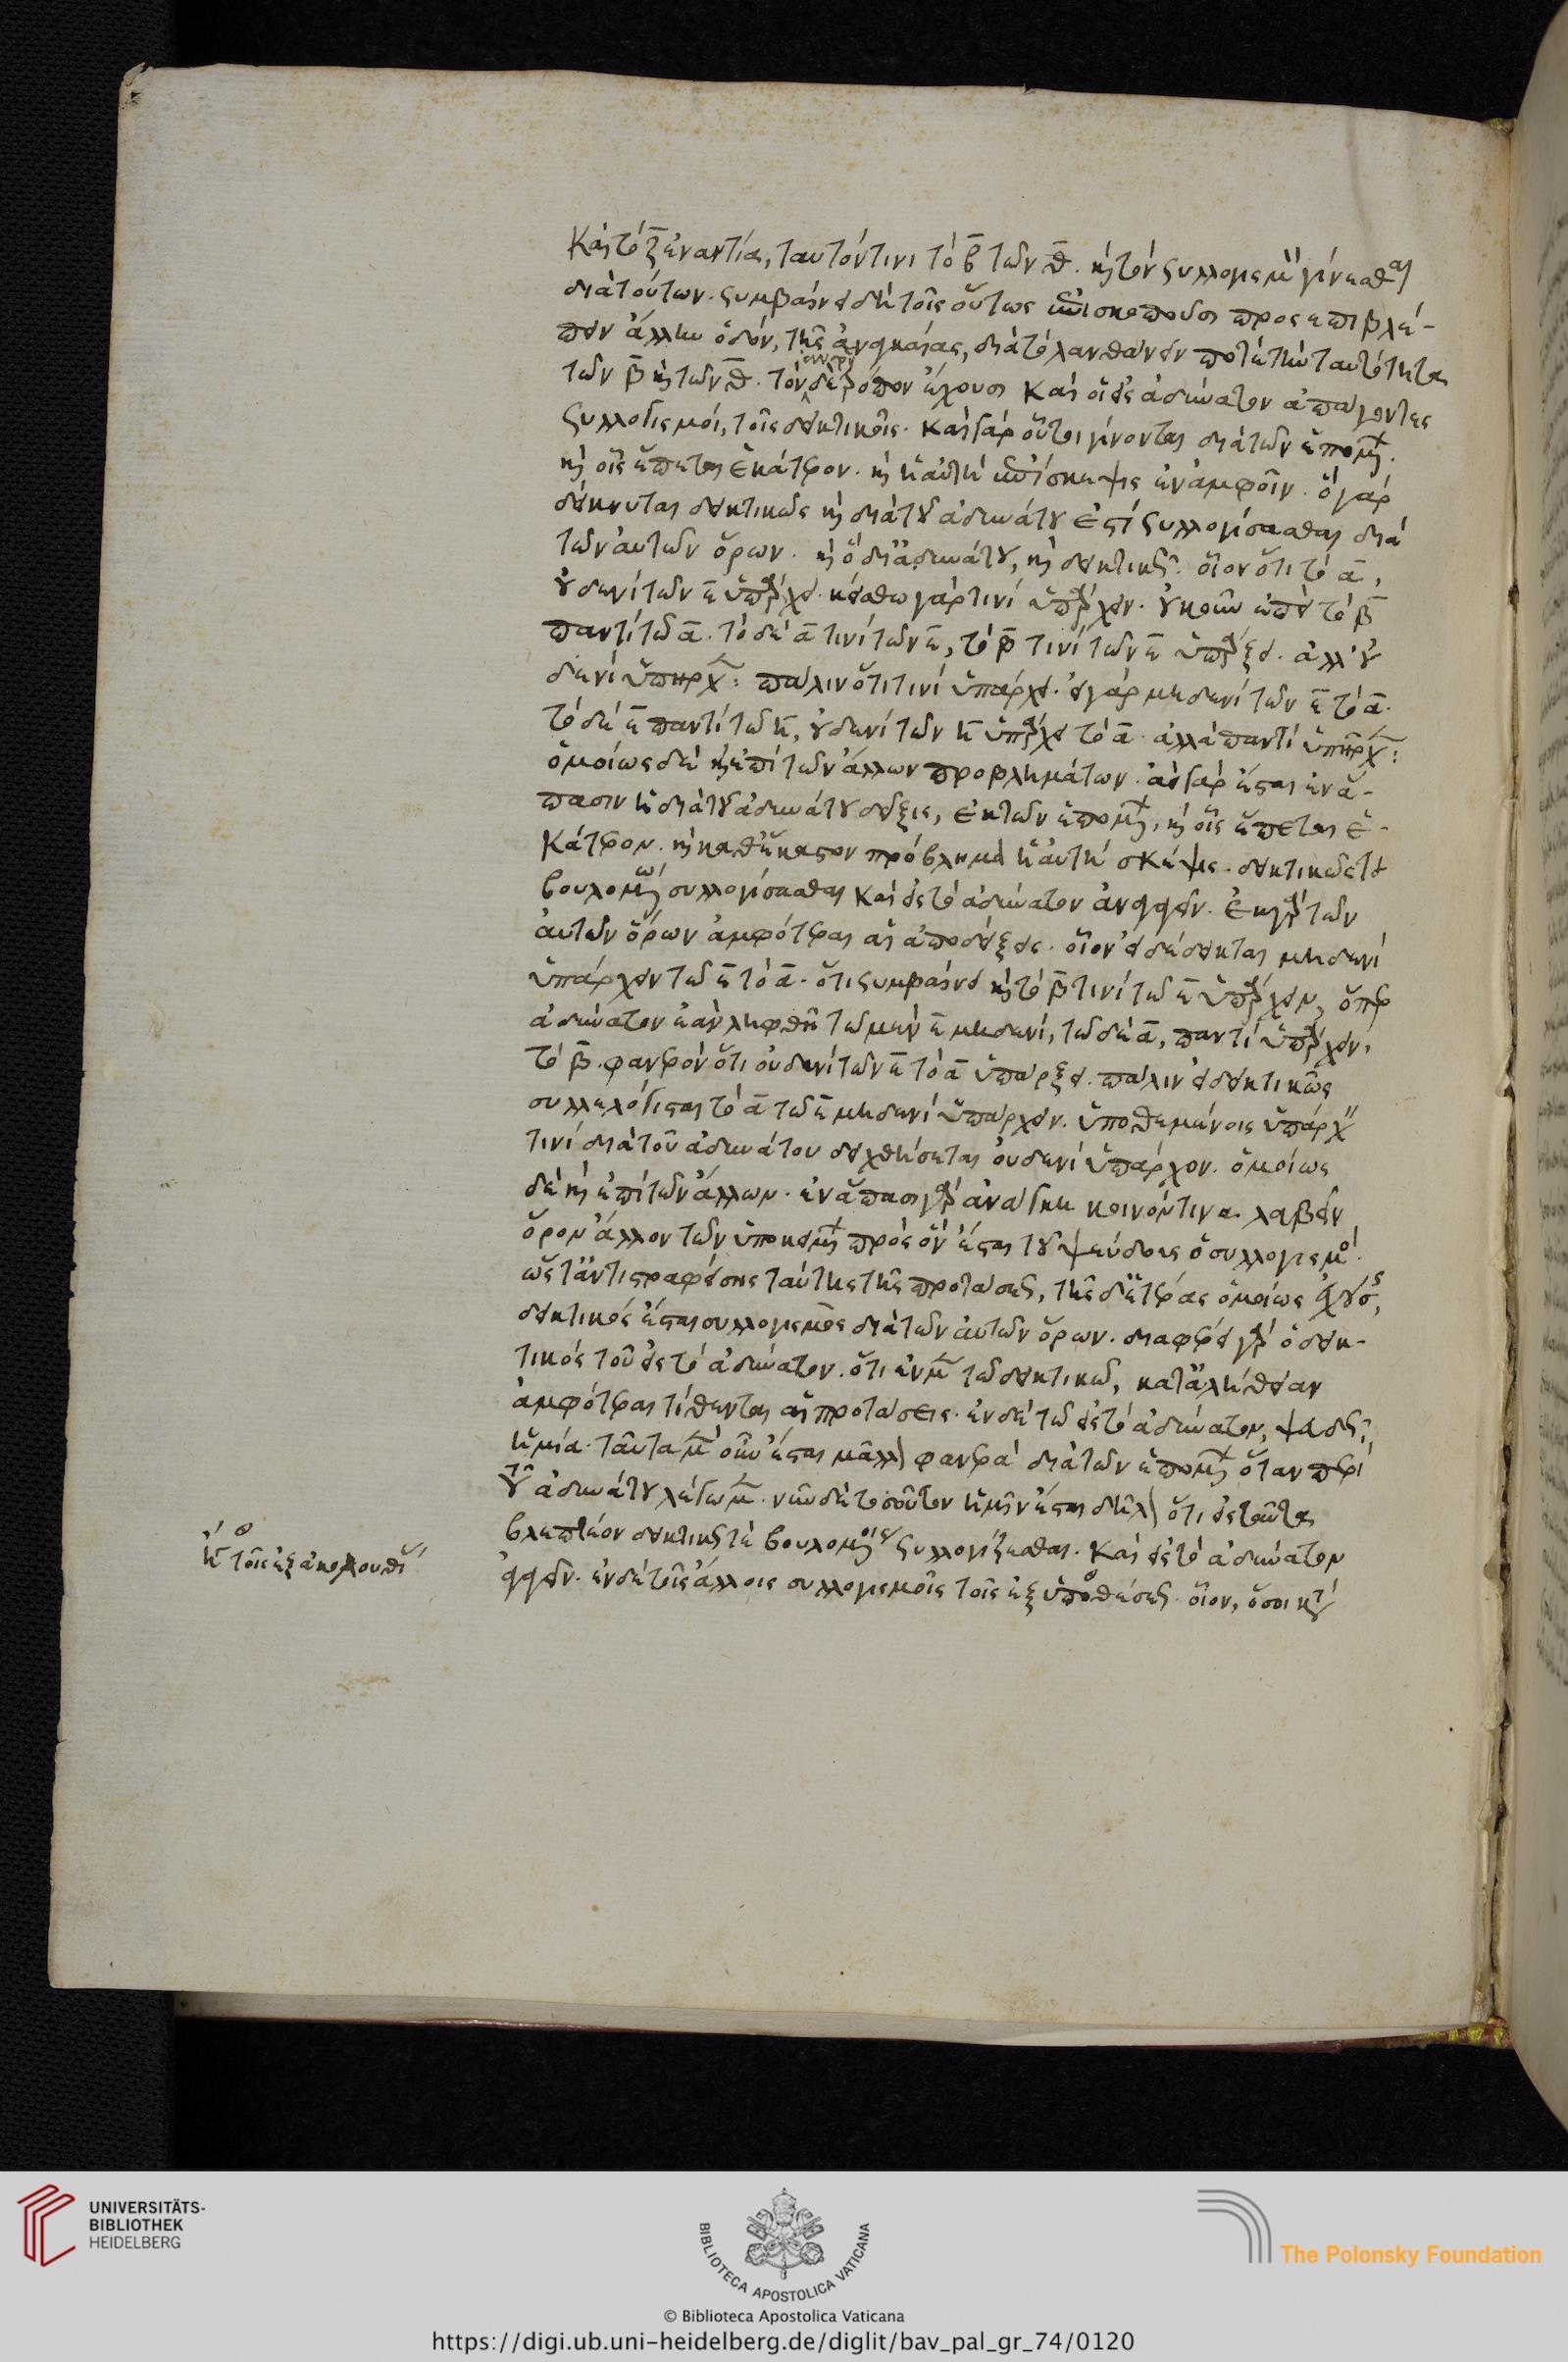 Καὶ τὸ ζ̄ ἐναντία, ταυτόν τινι τὸ β̄ τῶν θ̄. καὶ τὸν συλλογισμὸν γίνεσθαι
διὰ τούτων. συμβαίνει δὴ τοῖς οὕτως ἐπισκοποῦσι προσεπιβλέ-
πειν ἄλλην ὁδόν, τῆς ἀναγκαίας, διὰ τὸ λανθάνειν ποτὲ τὴν ταυτότητα
τῶν β̄ καὶ τῶν θ̄. τὸν αὐτὸν δὲ τρόπον ἔχουσι καὶ οἱ εἰς ἀδύνατον ἀπάγοντες
συλλογισμοί, τοῖς δεικτικοῖς. καὶ γὰρ οὗτοι γίνονται διὰ τῶν ἑπομένων.
καὶ οἷς ἕπεται ἑκάτερον. καὶ ἡ αὐτὴ ἐπίσκεψις ἐν ἀμφοῖν. ὃ γὰρ
δείκνυται δεικτικῶς καὶ διὰ τοῦ ἀδυνάτου ἐστὶ συλλογίσασθαι διὰ
τῶν αὐτῶν ὅρων. καὶ ὃ διὰ ἀδυνάτου, καὶ δεικτικῶς. οἷον ὅτι τὸ ᾱ,
οὐδενὶ τῶν ε̄ ὑπάρχει. κείσθω γὰρ τινὶ ὑπάρχειν. οὐκοῦν ἐπεὶ τὸ β̄
παντὶ τῷ ᾱ. τὸ δὲ ᾱ τινὶ τῶν ε̄, τὸ β̄ τινὶ τῶν ε̄ ὑπάρξει. ἀλλ' οὐ
δενὶ ὑπῆρχε: πάλιν ὅτι τινὶ ὑπάρχει. εἰ γὰρ μηδενὶ τῶν ε̄ τὸ ᾱ.
τὸ δὲ ε̄ παντὶ τῷ η̄, οὐδενὶ τῶν η̄ ὑπάρχει τὸ ᾱ. ἀλλὰ παντὶ ὑπῆρχε:
ὁμοίως δὲ καὶ ἐπὶ τῶν ἄλλων προβλημάτων. ἀεὶ γὰρ ἔσται ἐν ἅ-
πασιν ἡ διὰ τοῦ ἀδυνάτου δεῖξις, ἐκ τῶν ἑπομένων, καὶ οἷς ἕπεται ἑ-
κάτερον. καὶ καθ' ἕκαστον πρόβλημα ἡ αὐτὴ σκέψις. δεικτικῶς τε
βουλομένῳ συλλογίσασθαι καὶ εἰς τὸ ἀδύνατον ἀγαγεῖν. ἐκ γὰρ τῶν
αὐτῶν ὅρων ἀμφότεραι αἱ ἀποδείξεις. οἷον εἰ δέδεικται μηδενὶ
ὑπάρχειν τῷ ε̄ τὸ ᾱ. ὅτι συμβαίνει καὶ τὸ β̄ τινὶ τῷ ε̄ ὑπάρχειν, ὅπερ
ἀδύνατον ἐὰν ληφθῇ τῷ μὲν ε̄ μηδενί, τῷ δὲ ᾱ, παντὶ ὑπάρχειν,
τὸ β̄. φανερὸν ὅτι οὐδενὶ τῶν ε̄ τὸ ᾱ ὑπάρξει. πάλιν εἰ δεικτικῶς
συλλελόγισται τὸ ᾱ τῷ ε̄ μηδενὶ ὑπάρχειν. ὑποθεμένοις ὑπάρχειν
τινὶ διὰ τοῦ ἀδυνάτου δειχθήσεται οὐδενὶ ὑπάρχον. ὁμοίως
δὲ καὶ ἐπὶ τῶν ἄλλων. ἐν ἅπασι γὰρ ἀνάγκη κοινόν τινα λαβεῖν
ὅρον ἄλλον τῶν ὑποκειμένων πρὸς ὃν ἔσται τοῦ ψεύδους ὁ συλλογισμός.
ὥστ' ἀντιστραφείσης ταύτης τῆς προτάσεως, τῆς δ' ἑτέρας ὁμοίως ἐχούσης,
δεικτικὸς ἔσται συλλογισμὸς διὰ τῶν αὐτῶν ὅρων. διαφέρει γὰρ ὁ δεικ-
τικὸς τοῦ εἰς τὸ ἀδύνατον. ὅτι ἐν μὲν τῷ δεικτικῷ, κατ' ἀλήθειαν
ἀμφότεραι τίθενται αἱ προτάσεις. ἐν δὲ τῷ εἰς τὸ ἀδύνατον, ψευδῶς
ἡ μία. ταῦτα μὲν οὖν ἔσται μᾶλλον φανερὰ διὰ τῶν ἑπομένων ὅταν περὶ
τοῦ ἀδυνάτου λέγωμεν. νῦν δὲ τοσοῦτον ἡμῖν ἔσται δῆλον ὅτι εἰς ταῦτα
βλεπτέον δεικτικῶς τε βουλομένοις συλλογίζεσθαι. καὶ εἰς τὸ ἀδύνατον
ἀγαγεῖν. ἐν δὲ τοῖς ἄλλοις συλλογισμοῖς τοῖς ἐξ ὑποθέσεως. οἷον, ὅσοι κατὰ
τοῖς ἐξακολουθ
UNIVERSITÄTS-
BIBLIOTHEK
HEIDELBERG
BIBLIOTECA APOSTOLICA VATICANA
The Polonsky Foundation
© Biblioteca Apostolica Vaticana
https://digi.ub.uni-heidelberg.de/diglit/bav_pal_gr_74/0120